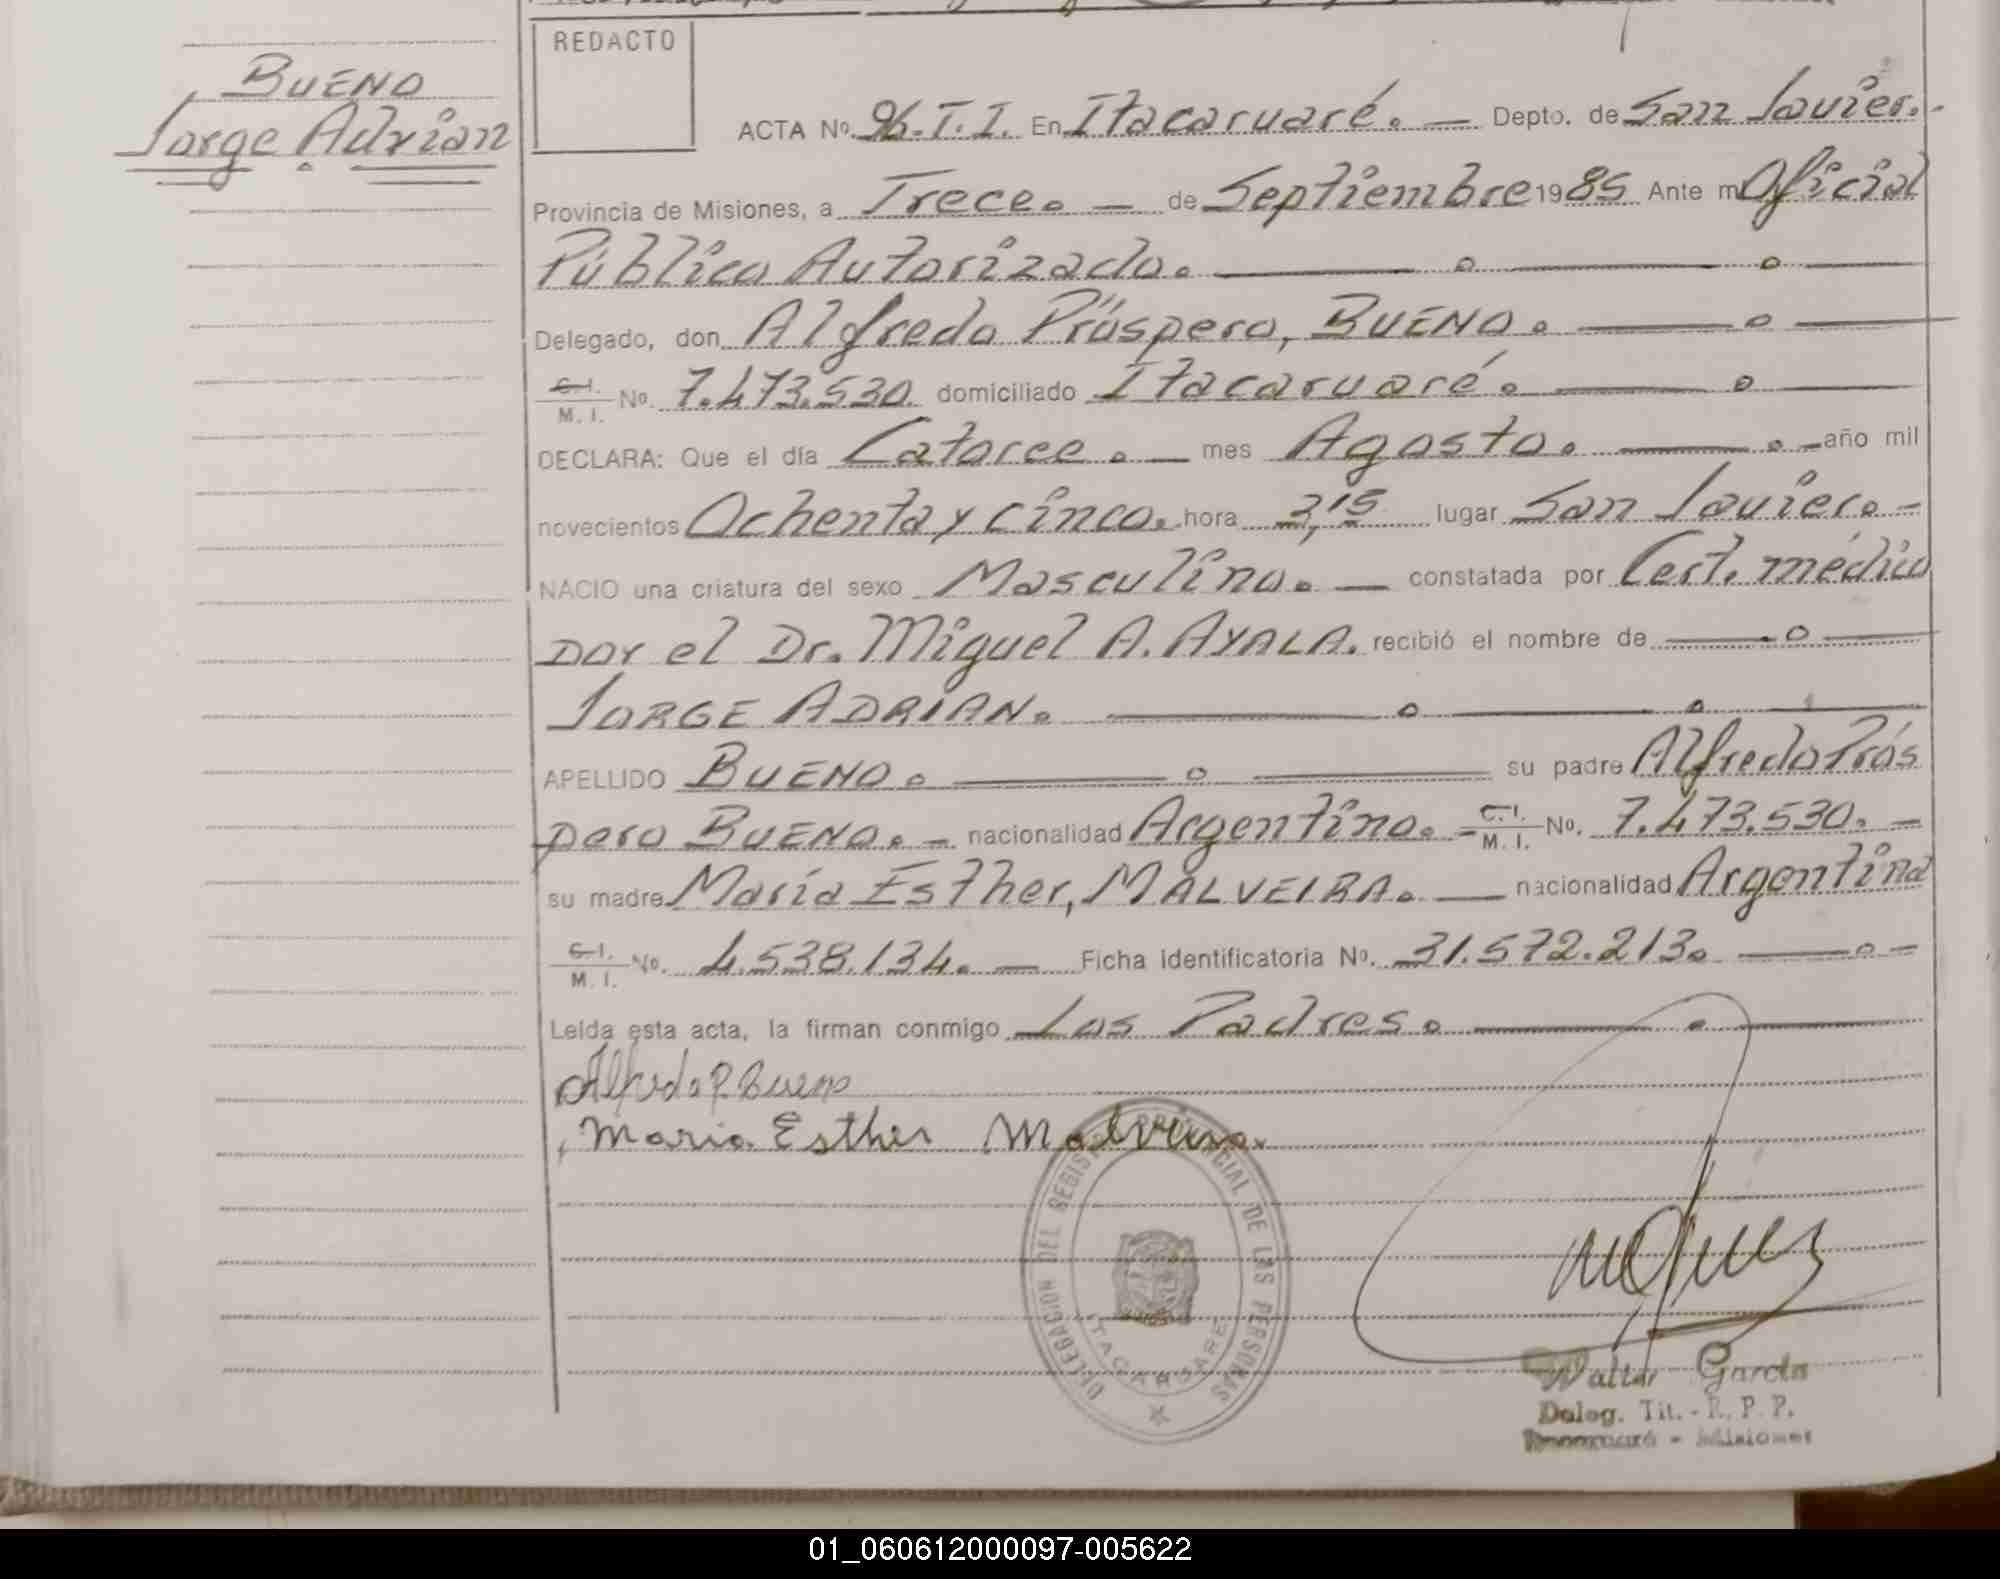 BUENO
Jorge Adrian
REDACTO
ACTA No. 96. T. I. En Itacaruaré. — Depto. de San Javier. -
Provincia de Misiones, a Trece. — de Septiembre 1985 Ante mi Oficial
Público Autorizado.
Delegado, don Alfredo Próspero, BUENO.
C. I.
M. I. No. 7.473.530. domiciliado Itacaruaré.
DECLARA: Que el día Catorce. — mes Agosto. — año mil
novecientos Ochenta y cinco. hora 3,15 lugar San Javier. -
NACIO una criatura del sexo Masculino. — constatada por Cert. médico
por el Dr. Miguel A. AYALA. recibió el nombre de
JORGE ADRIAN.
APELLIDO BUENO. su padre Alfredo Prós
pero BUENO. - nacionalidad Argentino. - C. I. M. I. No. 7.473.530. -
su madre María Esther, MALVEIRA. — nacionalidad Argentina
C. I.
M. I. No. 4.538.134. — Ficha identificatoria No. 31.572.213.
Leida esta acta, la firman conmigo Los Padres.
Alfredo P. Bueno
Maria Esther Malveira
DELEGACION DEL REGISTRO PROVINCIAL DE LAS PERSONAS
ITACARUARE
Walter García
Deleg. Tit. - R. P. P.
Itacaruaré - Misiones
01_060612000097-005622